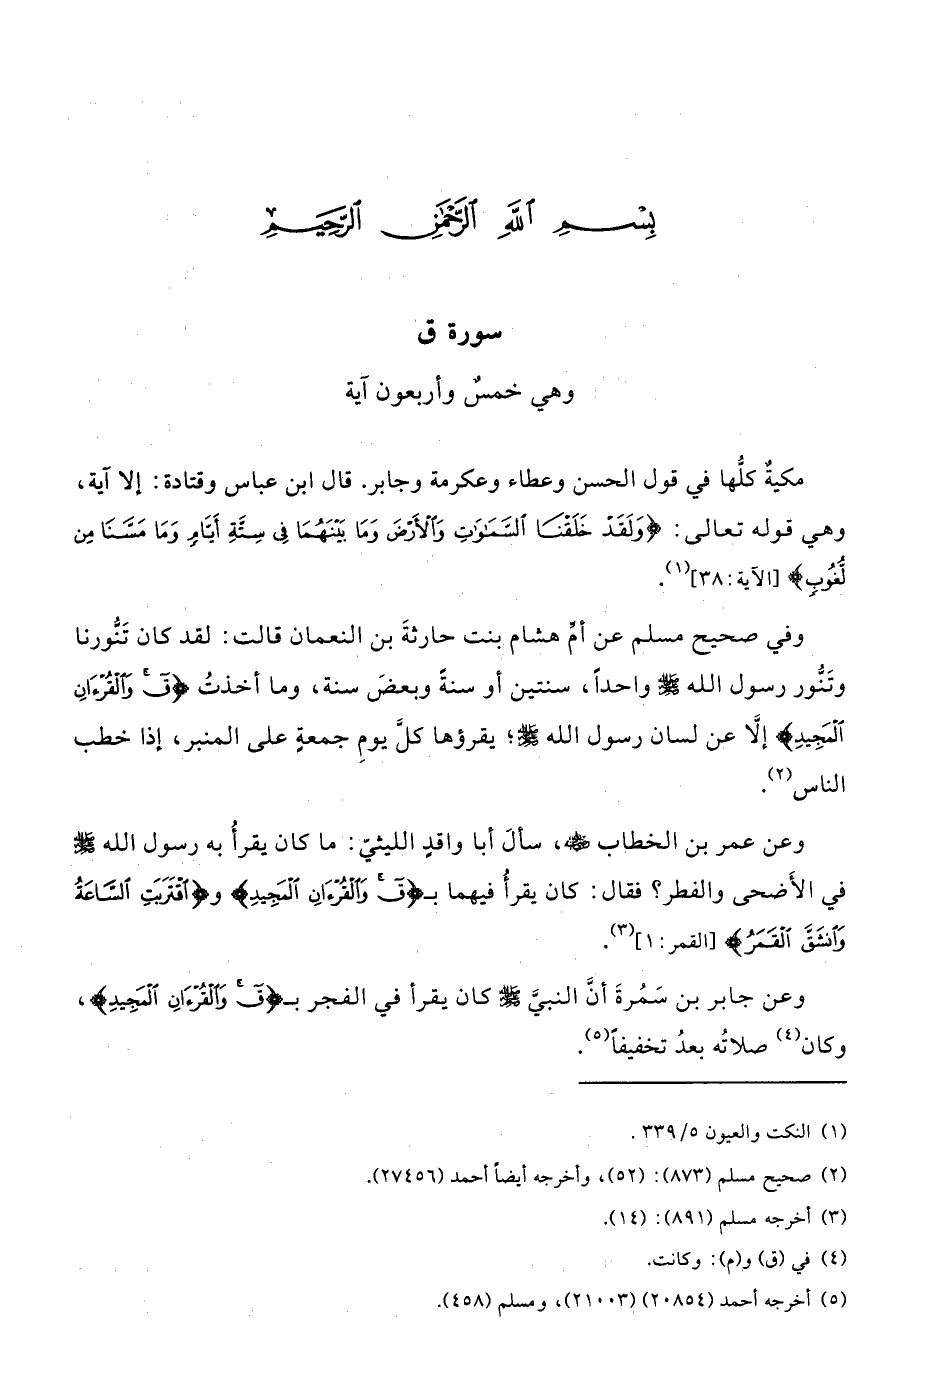 بِسْمِ ٱللَّهِ ٱلرَّحْمَٰنِ ٱلرَّحِيمِ
سورة ق
وهي خمسٌ وأربعون آية
مكيةٌ كلُّها في قول الحسن وعطاء وعكرمة وجابر. قال ابن عباس وقتادة: إلا آية،
وهي قوله تعالى: ﴿وَلَقَدْ خَلَقْنَا ٱلسَّمَٰوَٰتِ وَٱلْأَرْضَ وَمَا بَيْنَهُمَا فِى سِتَّةِ أَيَّامٍ وَمَا مَسَّنَا مِن
لُّغُوبٍ﴾ [الآية: ٣٨](١).
وفي صحيح مسلم عن أمِّ هشام بنت حارثةَ بن النعمان قالت: لقد كان تَنُّورنا
وتَنُّور رسول الله ﷺ واحداً، سنتين أو سنةً وبعضَ سنة، وما أخذتُ ﴿قٓ ۚ وَٱلْقُرْءَانِ
ٱلْمَجِيدِ﴾ إلَّا عن لسان رسول الله ﷺ؛ يقرؤها كلَّ يومِ جمعةٍ على المنبر، إذا خطب
الناس(٢).
وعن عمر بن الخطاب ﷺ، سألَ أبا واقدٍ الليثيّ: ما كان يقرأُ به رسول الله ﷺ
في الأَضحى والفطر؟ فقال: كان يقرأُ فيهما بـ﴿قٓ ۚ وَٱلْقُرْءَانِ ٱلْمَجِيدِ﴾ و﴿ٱقْتَرَبَتِ ٱلسَّاعَةُ
وَٱنشَقَّ ٱلْقَمَرُ﴾ [القمر: ١](٣).
وعن جابر بن سَمُرةَ أنَّ النبيَّ ﷺ كان يقرأ في الفجر بـ﴿قٓ ۚ وَٱلْقُرْءَانِ ٱلْمَجِيدِ﴾،
وكان(٤) صلاتُه بعدُ تخفيفاً(٥).
(١) النكت والعيون ٥/ ٣٣٩ .
(٢) صحيح مسلم (٨٧٣): (٥٢)، وأخرجه أيضاً أحمد (٢٧٤٥٦).
(٣) أخرجه مسلم (٨٩١): (١٤).
(٤) في (ق) و(م): وكانت.
(٥) أخرجه أحمد (٢٠٨٥٤) (٢١٠٠٣)، ومسلم (٤٥٨).